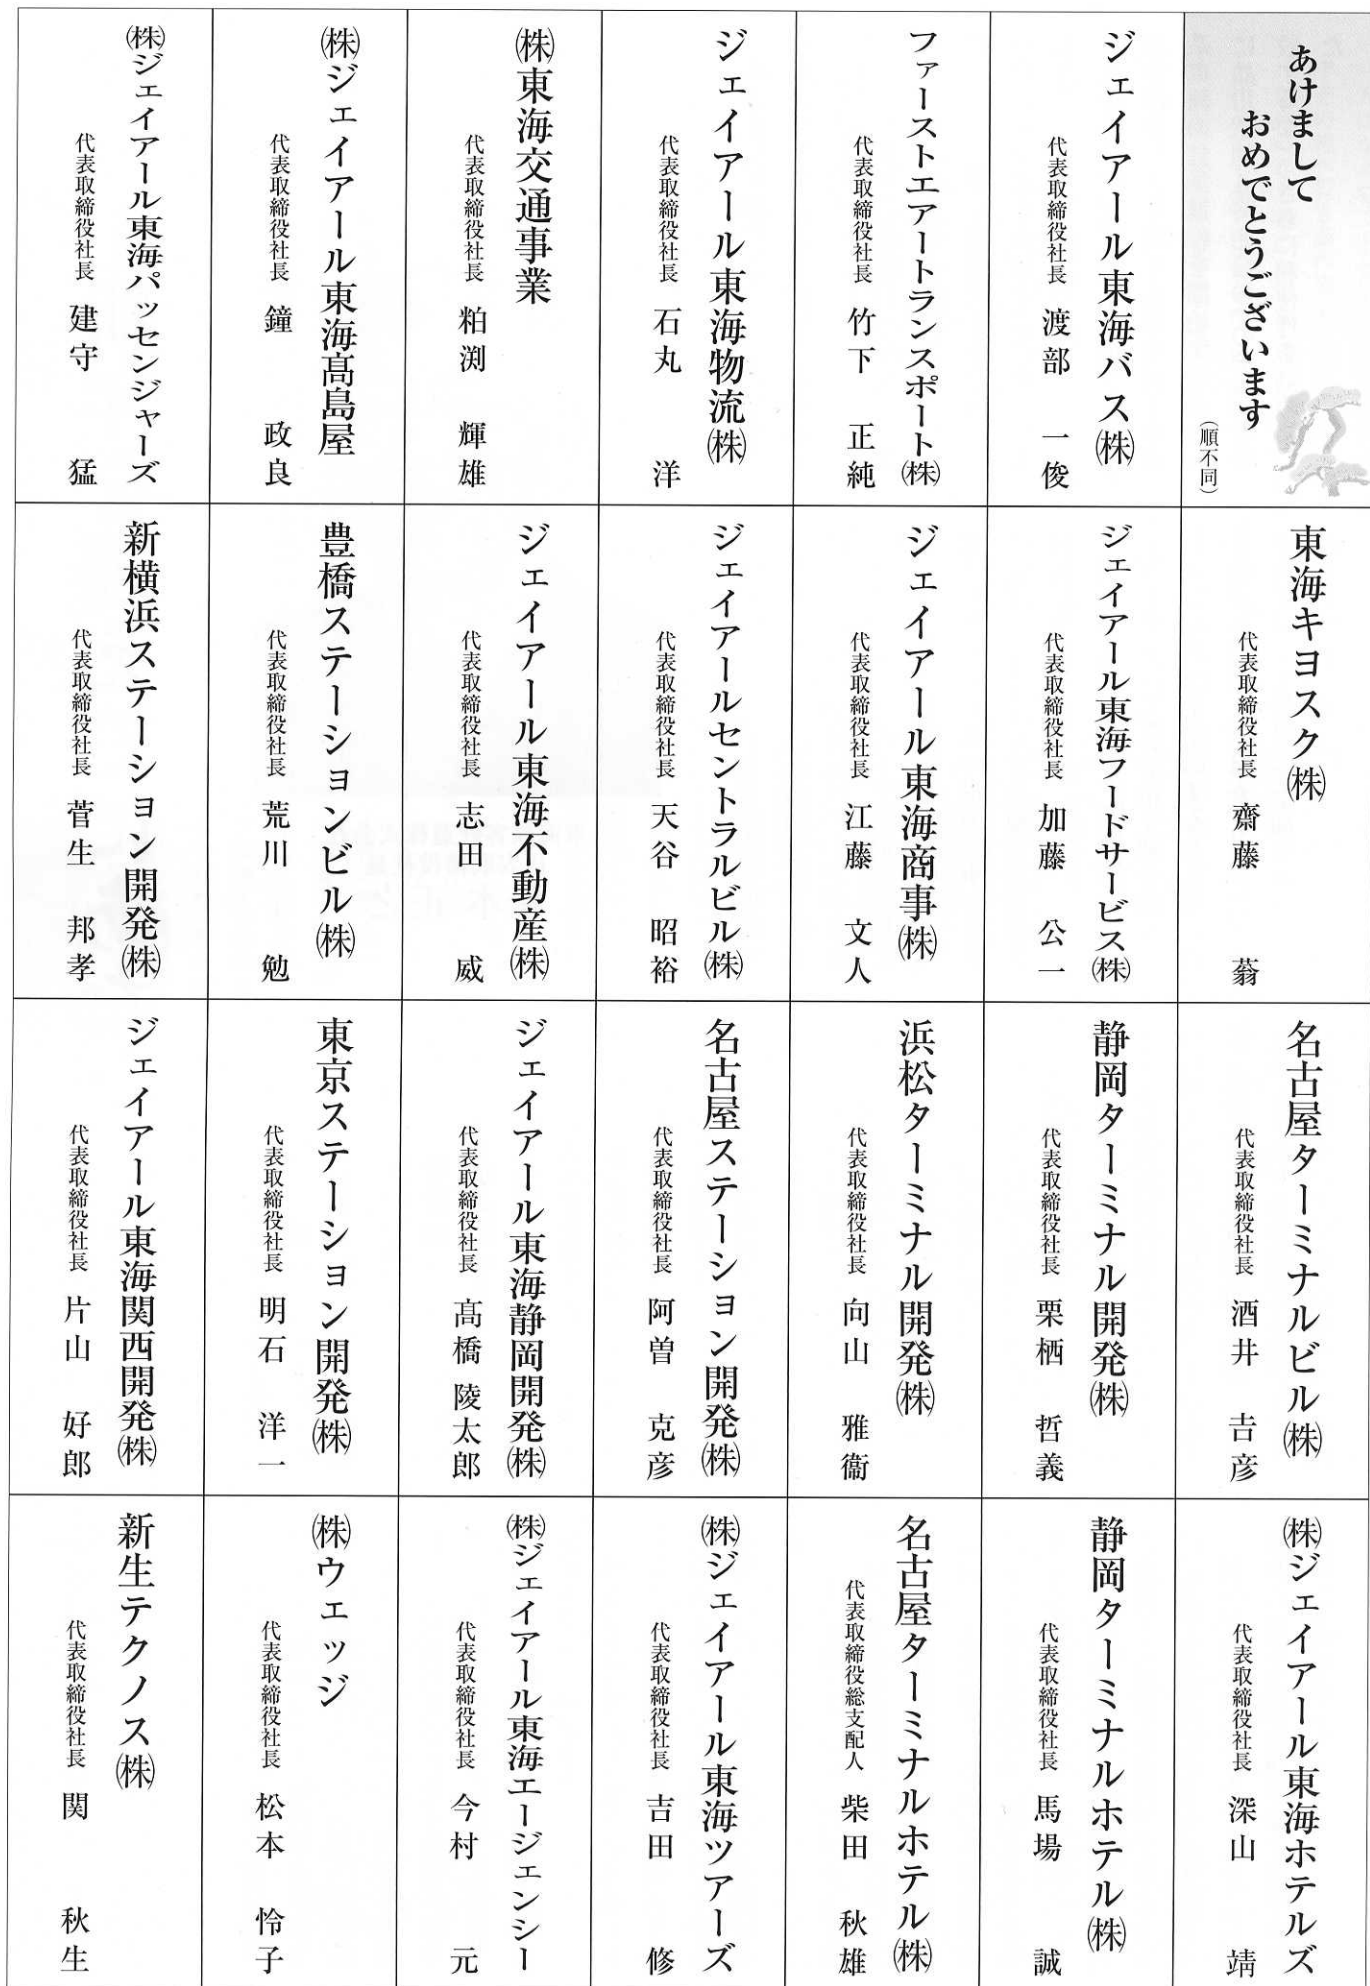 あけまして
おめでとうございます
（順不同）
ジェイアール東海バス㈱
代表取締役社長 渡部 一俊
ファーストエアートランスポート㈱
代表取締役社長 竹下 正純
ジェイアール東海物流㈱
代表取締役社長 石丸 洋
㈱東海交通事業
代表取締役社長 粕渕 輝雄
㈱ジェイアール東海髙島屋
代表取締役社長 鐘 政良
㈱ジェイアール東海パッセンジャーズ
代表取締役社長 建守 猛
東海キヨスク㈱
代表取締役社長 齋藤 蓊
ジェイアール東海フードサービス㈱
代表取締役社長 加藤 公一
ジェイアール東海商事㈱
代表取締役社長 江藤 文人
ジェイアールセントラルビル㈱
代表取締役社長 天谷 昭裕
ジェイアール東海不動産㈱
代表取締役社長 志田 威
豊橋ステーションビル㈱
代表取締役社長 荒川 勉
新横浜ステーション開発㈱
代表取締役社長 菅生 邦孝
名古屋ターミナルビル㈱
代表取締役社長 酒井 𠮷彦
静岡ターミナル開発㈱
代表取締役社長 栗栖 哲義
浜松ターミナル開発㈱
代表取締役社長 向山 雅衞
名古屋ステーション開発㈱
代表取締役社長 阿曽 克彦
ジェイアール東海静岡開発㈱
代表取締役社長 髙橋 陵太郎
東京ステーション開発㈱
代表取締役社長 明石 洋一
ジェイアール東海関西開発㈱
代表取締役社長 片山 好郎
㈱ジェイアール東海ホテルズ
代表取締役社長 深山 靖
静岡ターミナルホテル㈱
代表取締役社長 馬場 誠
名古屋ターミナルホテル㈱
代表取締役総支配人 柴田 秋雄
㈱ジェイアール東海ツアーズ
代表取締役社長 吉田 修
㈱ジェイアール東海エージェンシー
代表取締役社長 今村 元
㈱ウェッジ
代表取締役社長 松本 怜子
新生テクノス㈱
代表取締役社長 関 秋生